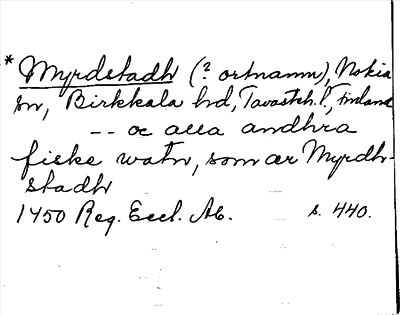 * Myrdstadh (? ortnamn), Nokia
sn, Birkkala hd, Tavasteh. l., Finland
-- oc alla andhra
fiske watn, som ær Myrdh-
stadh
1450 Reg. Eccl. Ab. s. 440.